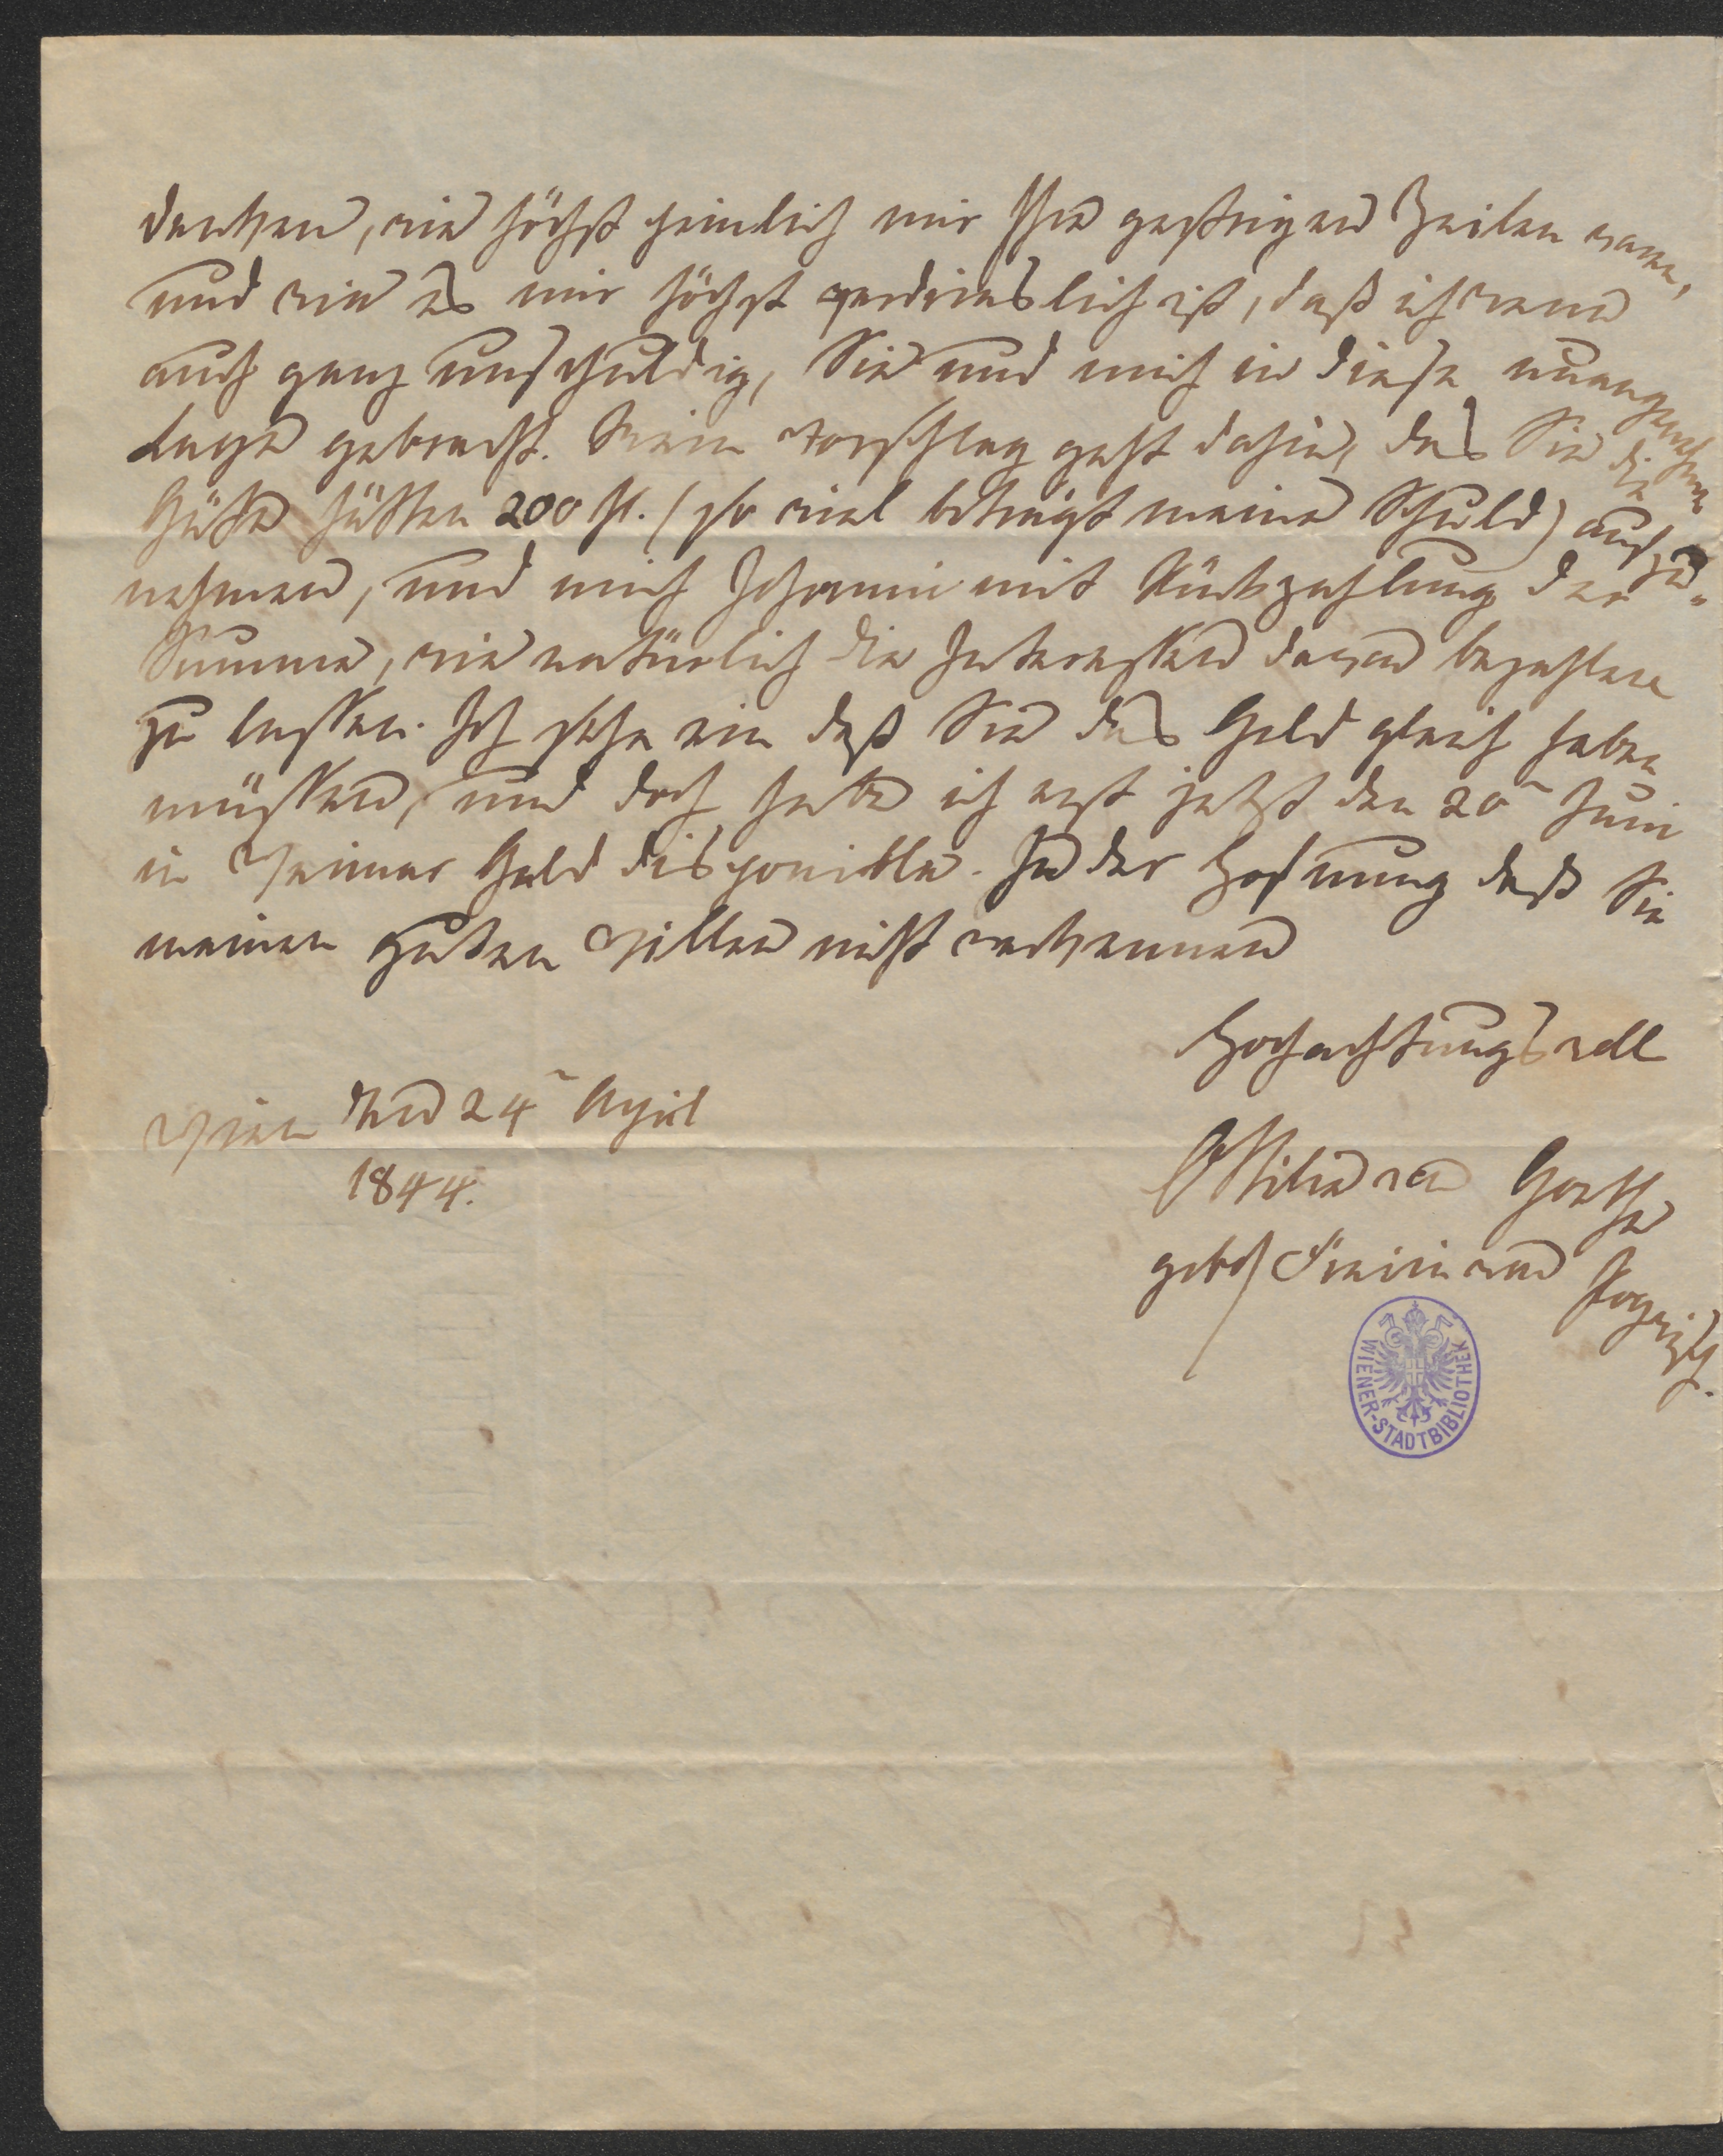 denken, wie höchst peinlich mir Ihre gestrigen Zeilen waren,
und wie es mir höchst verdrieslich ist, daß ich wenn
auch ganz unschuldig, Sie und mich in diese unangenehme
Lage gebracht. Mein Vorschlag geht dahin, das Sie die
Güte hätten 200 fl. (so viel beträgt meine Schuld) aufzu-
nehmen, und mich Johanni mit Rückzahlung der
Summe, wie natürlich die Interessen davon bezahlen
zu lassen. Ich sehe ein daß Sie das Geld gleich haben
müssen, und doch habe ich erst jetzt den 20n Juni
in Weimar Geld disponible. In der Hofnung daß Sie
meinen guten Willen nicht verkennen
Hochachtungsvoll
Wien den 24n April
1844.
Ottilie von Goethe
geb. Freiin von Pogwisch.
WIENER-STADTBIBLIOTHEK